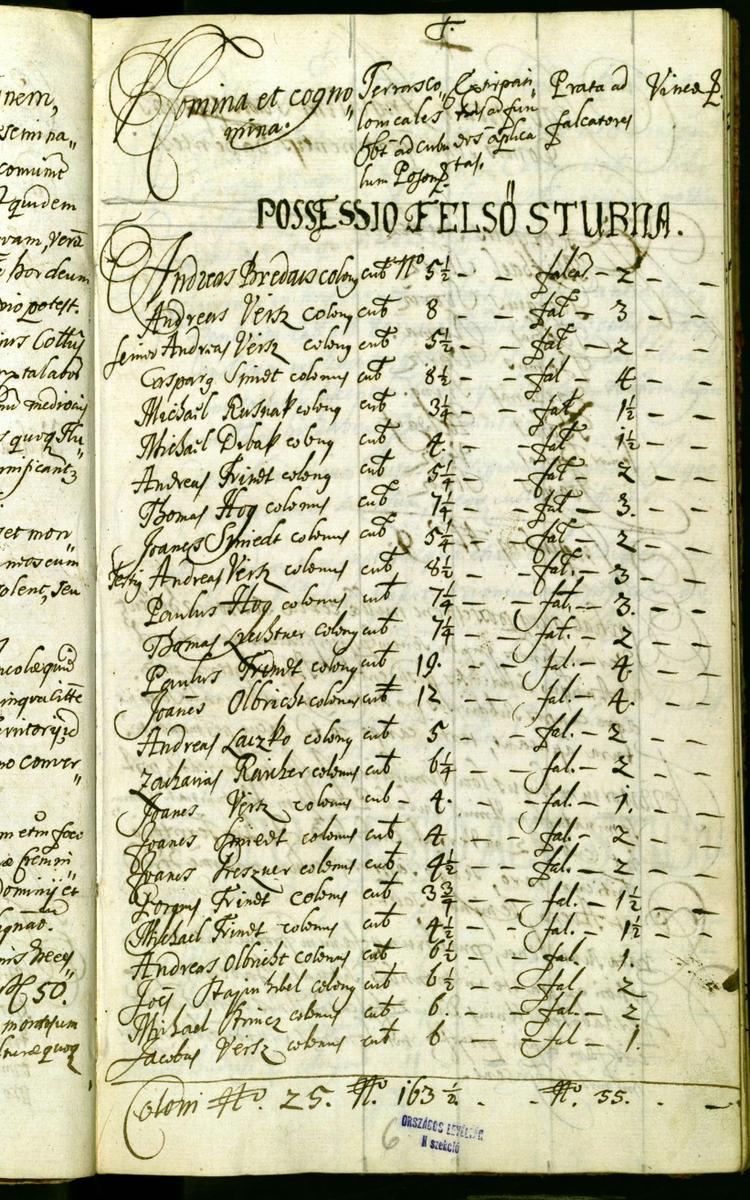 nem,
semina„
comunit
quidem
vam, verũ
hordeum
potest.
Cottus
talabor
medrois
quoq flu„
mificant
et mon
moscum
olent, seu
ncolæ quid
inqualitte
erritorÿ
no conver„
m etm foco
æ cremn
Dominÿ et
gnaõ.
50.
montium
turæ quoq
Nomina et cogno„
mina.
Terrasco„
lonicales
Obt ad cubu„
lum Poson.
Extirpati
ad fun
ders aplica
tas.
Prata ad
falcatores
Vinea P.
POSSESSIO FELSŐ STUBNA.
Andreas Bredais colong cub No 5½ – – falcat. – 2 – –
Andreas Versz colong cub 8 – – fal – 3 – –
senior Andreas Versz colong cub 5½ – – fal – 2 – –
Casparg Smedt colonus cub 8½ – – fal – 4 – –
Michail Rusnak colong cub 3¼ – – fal 1½ – –
Michail Debak colong cub 4. – – fal 1½ – –
Andreas Frindt colong cub 5¼ – – fal – 2 – –
Thomas Hog colonus cub 7¼ – – fal – 3. – –
Joanes Smiedt colonus cub 5¼ – – fal – 2 – –
Andreas Versz colonus cub 8½ – – fal. – 3 – –
Paulus Hog colonus cub 7¼ – – fal. – 3. – –
Thomas Lechtner colong cub 7¼ – – fal. – 2 – –
Paulus Frindt colong cub 19. – – fal. – 4 – –
Joanes Olbricht colonus cub 12 – – fal. – 4. – –
Andreas Laczko colong cub 5 – – fal. – 2 – –
Zacharias Raicher colonus cub 6¼ – – fal. – 2 – –
Joanes Versz colonus cub – 4. – – fal. – 1. – –
Joanes Smiedt colonus cub 4. – – fal. – 2 – –
Joanes Preszner colonus cub 4½ – – fal. – 2 – –
Frindt colonus cub 3¾ – – fal. – 1½ – –
Michael Frindt colonus cub 4½ – – fal. – 1½ – –
Andreas Olbricht colonus cub 6½ – – fal. 1. – –
colong cub 6½ – – fal 2 – –
Mihael colonus cub 6. – – fal – 2 – –
Jacobus Versz colonus cub 6 – – fal – 1. – –
Coloni No. 25. No. 163½. – – No. 55. – –
6
ORSZÁGOS LEVÉLTÁR
N szekció